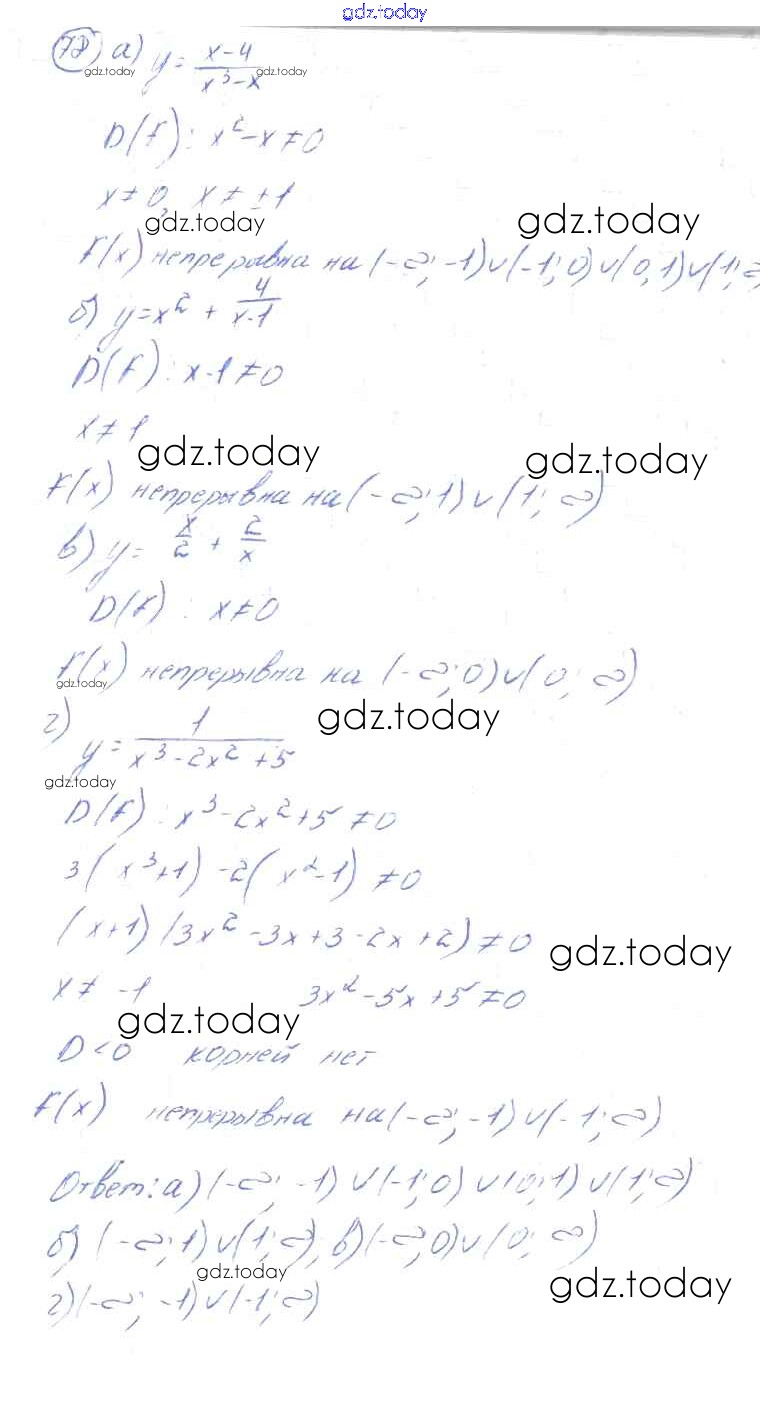 gdz.today
78) а) y = (x-4)/(x³-x)
gdz.today gdz.today
D(f): x²-x≠0
x≠0, x≠±1
gdz.today gdz.today
f(x) непрерывна на (-∞; -1)∪(-1; 0)∪(0; 1)∪(1; ∞
б) y=x² + 4/(x-1)
D(f): x-1≠0
x≠1
gdz.today gdz.today
f(x) непрерывна на (-∞; 1)∪(1; ∞)
в) y= x/2 + 2/x
D(f): x≠0
f(x) непрерывна на (-∞; 0)∪(0; ∞)
gdz.today gdz.today
г) y= 1/(x³-2x²+5)
gdz.today
D(f): x³-2x²+5≠0
3(x³+1)-2(x²-1)≠0
(x+1)(3x²-3x+3-2x+2)≠0
gdz.today
x≠-1 3x²-5x+5≠0
gdz.today
D<0 корней нет
f(x) непрерывна на (-∞; -1)∪(-1; ∞)
Ответ: а) (-∞; -1)∪(-1; 0)∪(0; 1)∪(1; ∞)
б) (-∞; 1)∪(1; ∞), в) (-∞; 0)∪(0; ∞)
gdz.today gdz.today
г) (-∞; -1)∪(-1; ∞)